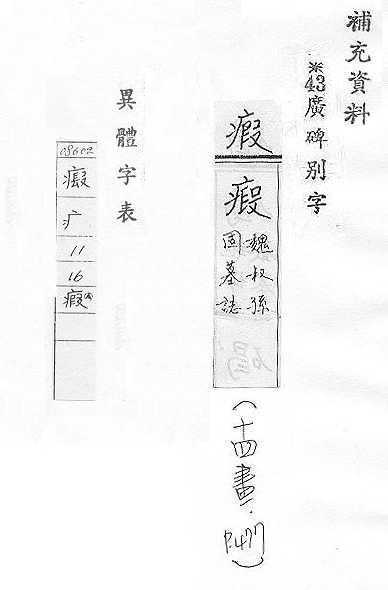 補充資料
※43廣碑別字
瘕
瘕
魏叔孫
固墓誌
(十四畫.P.477)
異體字表
疒
11
16
瘕